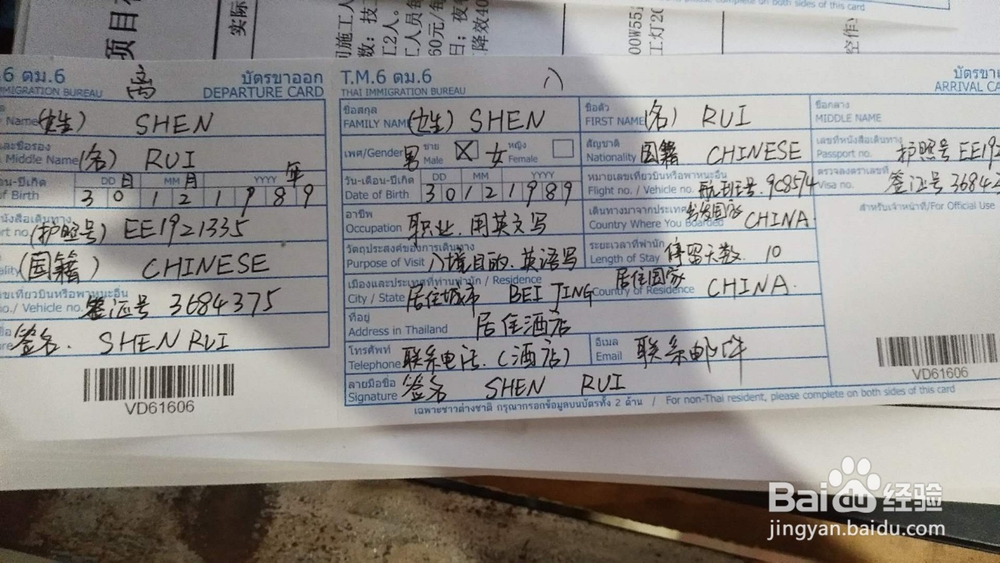 项目
实际
T.M.6 ตม.6 离 บัตรขาออก
IMMIGRATION BUREAU DEPARTURE CARD
Name (姓) SHEN
และชื่อรอง
Middle Name (名) RUI
DD 日 MM 月 YYYY 年
of Birth 3 0 1 2 1 9 8 9
(护照号) EE1921335
(国籍) CHINESE
Vehicle no. 签证号 3684375
签名. SHEN RUI
VD61606
T.M.6 ตม.6 入 บัตรขา
THAI IMMIGRATION BUREAU ARRIVAL CA
ชื่อสกุล ชื่อตัว ชื่อกลาง
FAMILY NAME (姓) SHEN FIRST NAME (名) RUI MIDDLE NAME
เพศ/Gender 男 ชาย Male X 女 หญิง Female สัญชาติ Nationality 国籍 CHINESE เลขที่หนังสือเดินทาง Passport no. 护照号 EE192
วัน-เดือน-ปีเกิด DD MM YYYY หมายเลขเที่ยวบินหรือพาหนะอื่น ตรวจลงตราเลขที่
Date of Birth 3 0 1 2 1 9 8 9 Flight no. / Vehicle no. 航班号. 908574 Visa no. 签证号 3684
อาชีพ เดินทางมาจากประเทศ สำหรับเจ้าหน้าที่/For Official Use
Occupation 职业. 用英文写 Country Where You Boarded 出发国家 CHINA
วัตถุประสงค์ของการเดินทาง ระยะเวลาที่พำนัก
Purpose of Visit 入境目的. 英语写 Length of Stay 停留天数. 10
เมืองและประเทศที่ท่านพำนัก / Residence
City / State 居住城市 BEI JING Country of Residence 居住国家 CHINA.
ที่อยู่
Address in Thailand 居住酒店
โทรศัพท์ อีเมล
Telephone 联系电话. (酒店) Email 联系邮件
ลายมือชื่อ
Signature 签名 SHEN RUI
VD61606
เฉพาะชาวต่างชาติ กรุณากรอกข้อมูลบนบัตรทั้ง 2 ด้าน / For non-Thai resident, please complete on both sides of this card
Baidu经验
jingyan.baidu.com